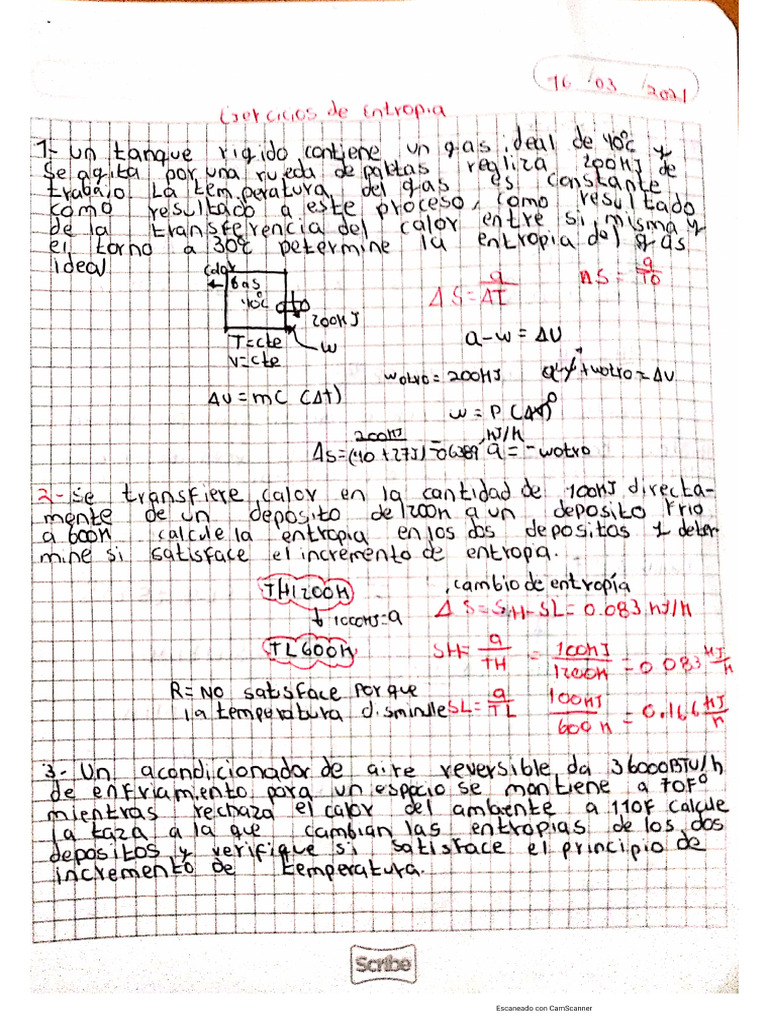 16 /03 /2021
Ejercicios de Entropia
1- un tanque rigido contiene un gas ideal de 40°c y
se agita por una rueda de paletas realiza 200KJ de
trabajo. La temperatura del gas es constante
como resultado a este proceso, como resultado
de la transferencia del calor entre si misma y
el torno a 30°c determine la entropia del gas
ideal
calor
Gas
40°c
200KJ
W
T=cte
V=cte
ΔS= q/ΔT
ΔS = q/TO
a-w = ΔU
wotro = 200KJ
+wotro=ΔU
ΔU=mc (Δt)
w = P (ΔV)°
ΔS= 200KJ/(40+273) =0.6389 KJ/K
a=-wotro
2-se transfiere calor en la cantidad de 100KJ directa-
mente de un deposito de 1200K a un deposito frio
a 600K calcule la entropia en los dos depositos y deter
mine si satisface el incremento de entropa.
TH1200K
1000KJ=a
TL600K
cambio de entropía
ΔS=SH-SL=0.083 KJ/K
SH= q/TH = 100KJ/1200K =0.083 KJ/K
R=NO satisface porque
la temperatura disminulle
SL= q/TL 100KJ/600K =0.166 KJ/K
3- Un acondicionador de aire reversible da 36000BTU/h
de enfriamiento para un espacio se mantiene a 70F°
mientras rechaza el calor del ambiente a 110F calcule
la taza a la que cambian las entropias de los dos
depositos y verifique si satisface el principio de
incremento de temperatura.
Scribe
Escaneado con CamScanner